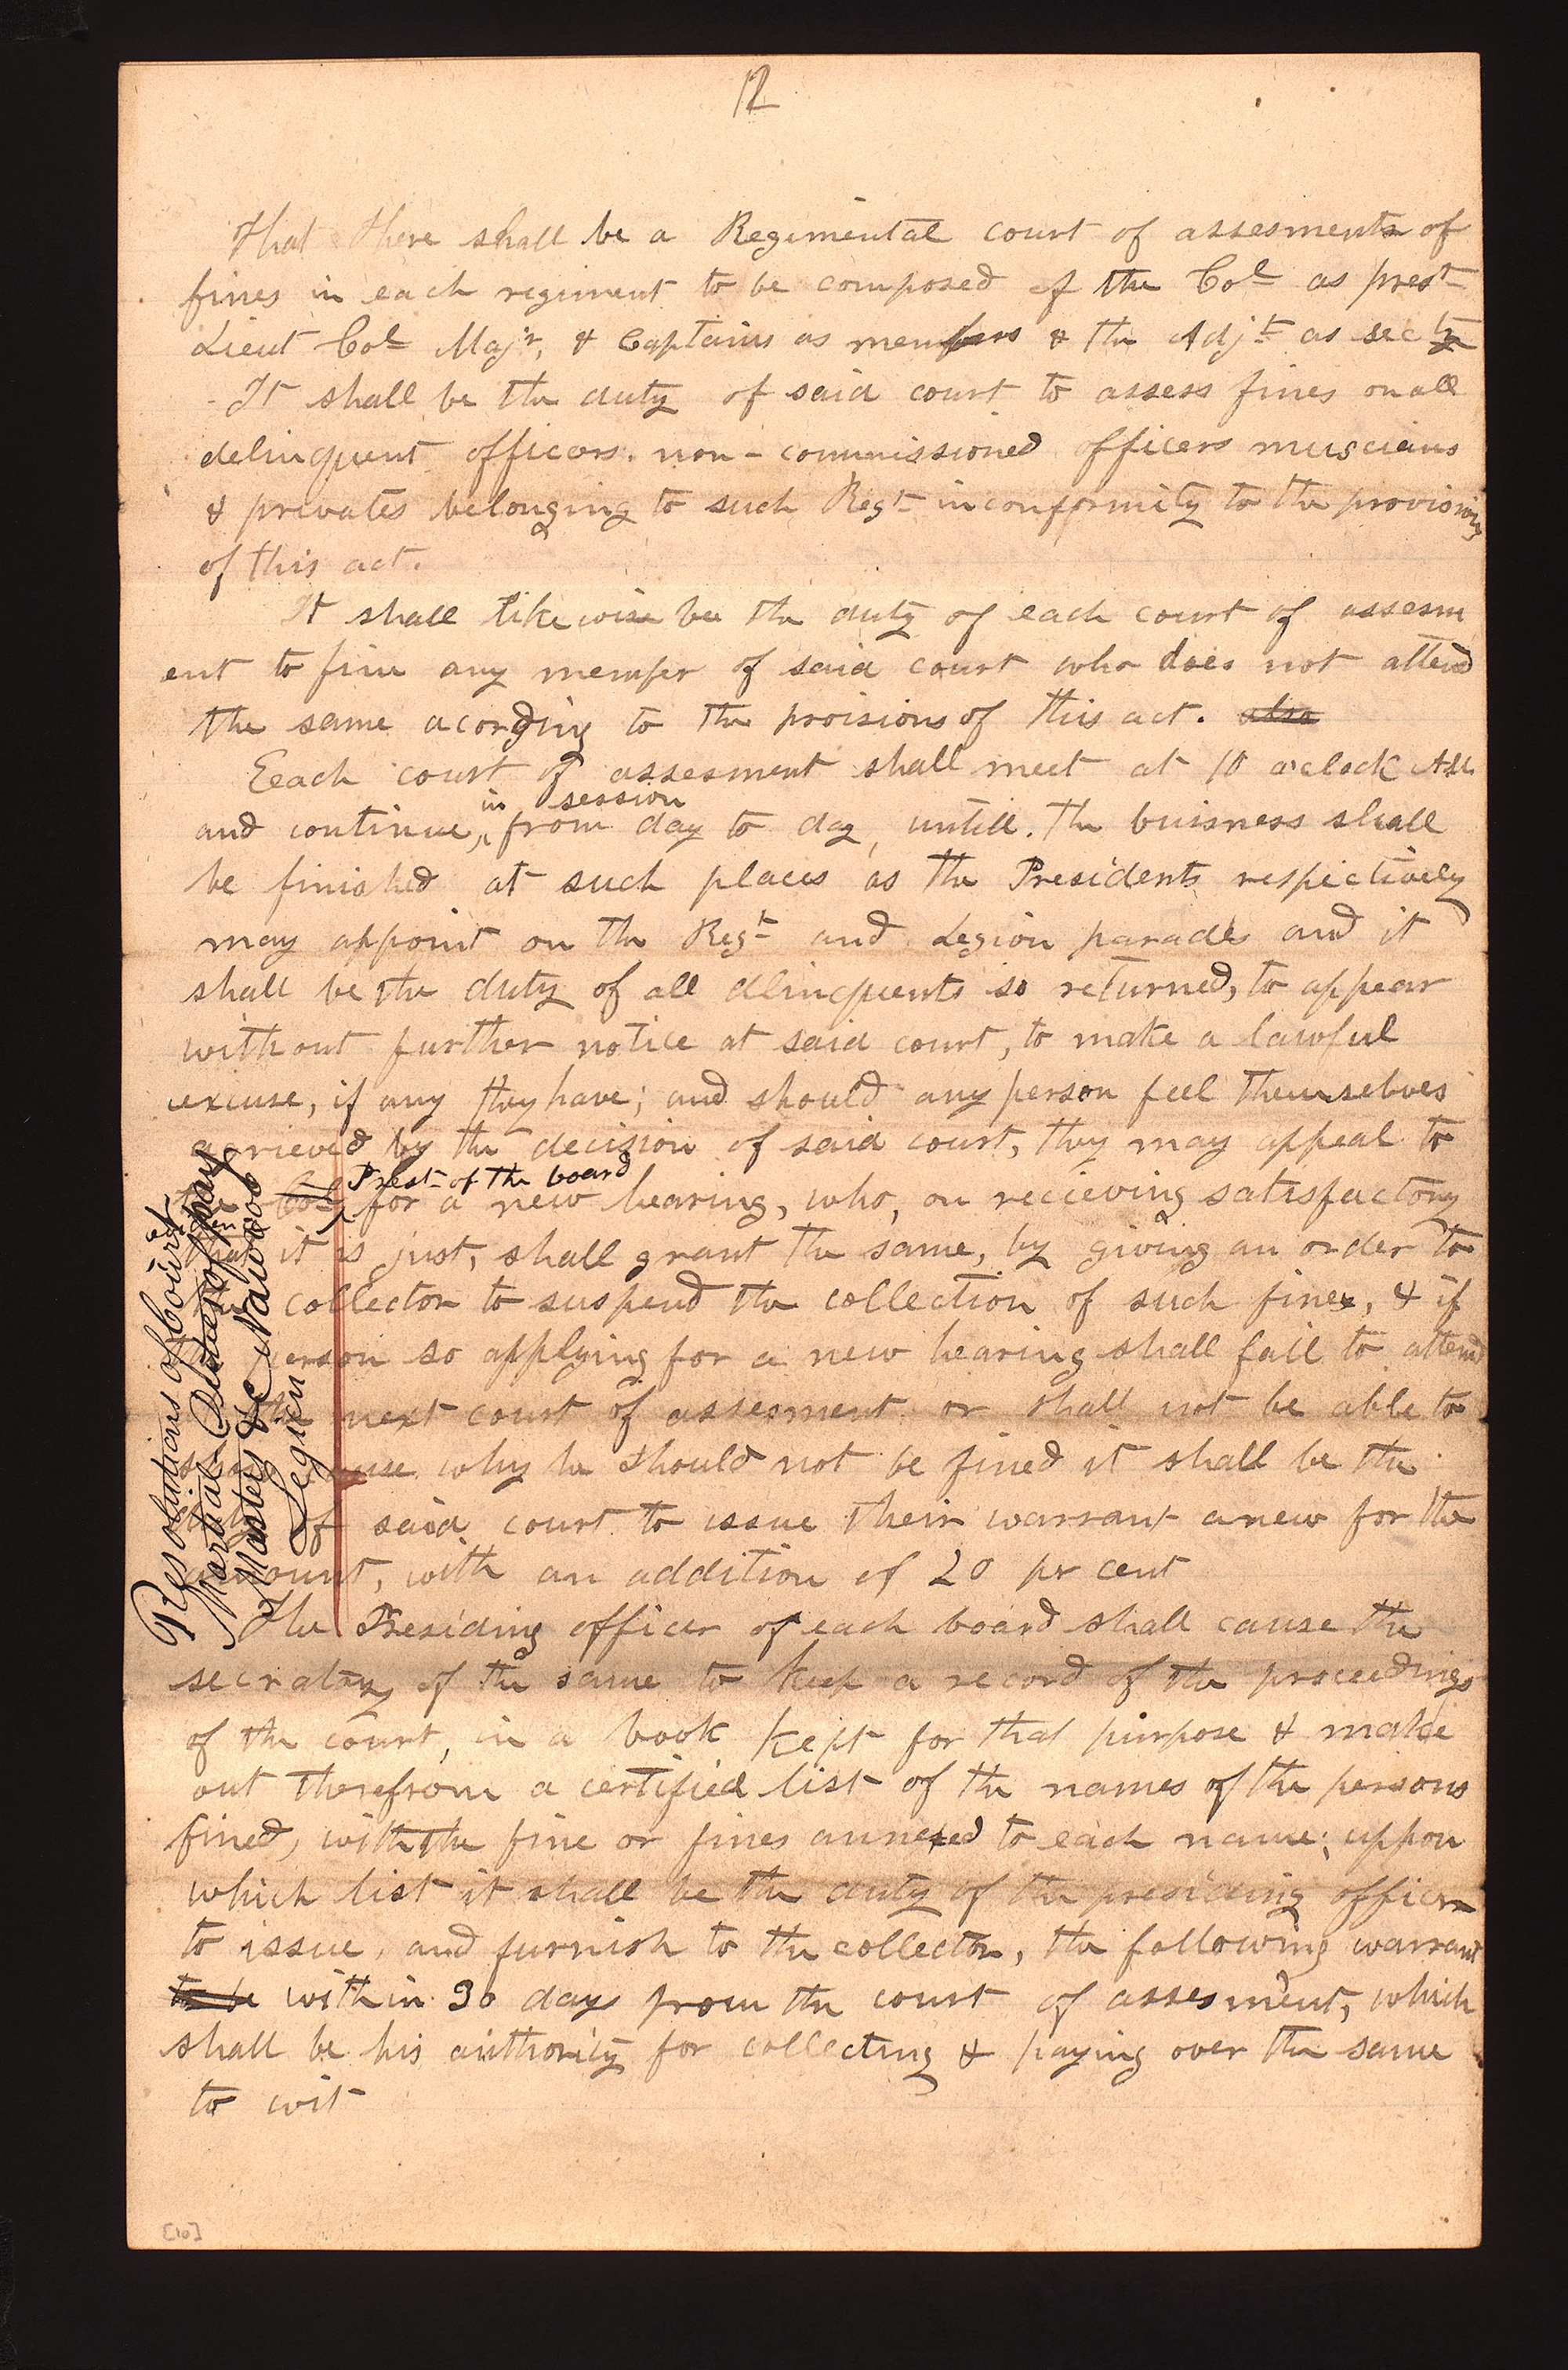 12
That there shall be a Regimental court of assesments of
fines in each regiment to be composed of the Col as prest
Lieut Col Majr, & Captains as members & the Adjt as secty
It shall be the duty of said court to assess fines on all
delinquent officers. non-commissioned officers muscians
& privates belonging to such Regt in conformity to the provisions
of this act.
It shall likewise be the duty of each court of assesm
ent to fine any member of said court who does not attend
the same acording to the proisions of this act. also
Eeach court of assesment shall meet at 10 o'clock AM
in session
and continue, from day to day, untill. the buisness shall
be finished at such places as the Presidents respectively
may appoint on the Regt and Legion parades and it
shall be the duty of all dlinquents so returned, to appear
without further notice at said court, to make a lawful
excuse, if any they have; and should any person feel themselves
agrieved by the decision of said court, they may appeal to
Prest of the board
the Col for a new hearing, who, on recieving satisfactory
that it is just, shall grant the same, by giving an order to
the collector to suspend the collection of such fines, & if
the person so applying for a new hearing shall fail to attend
the next court of assesment or shall not be able to
cause why he should not be fined it shall be the
duty of said court to issue their warrant anew for the
amount, with an addition of 20 pr cent
The Presiding officer of each board shall cause the
secratary of the same to keep a record of the proceedings
of the court, in a book kept for that purpose & make
out therefrom a certified list of the names of the persons
fined, with the fine or fines annexed to each name; uppon
which list it shall be the duty of the presiding officer
to issue, and furnish to the collector, the following warrant
to be within 30 days from the court of assesment, which
shall be his authority for collecting & paying over the same
to wit
Resolutions of Court
Martial Duties of pay
Masters &c Nauvoo
Legion
[10]